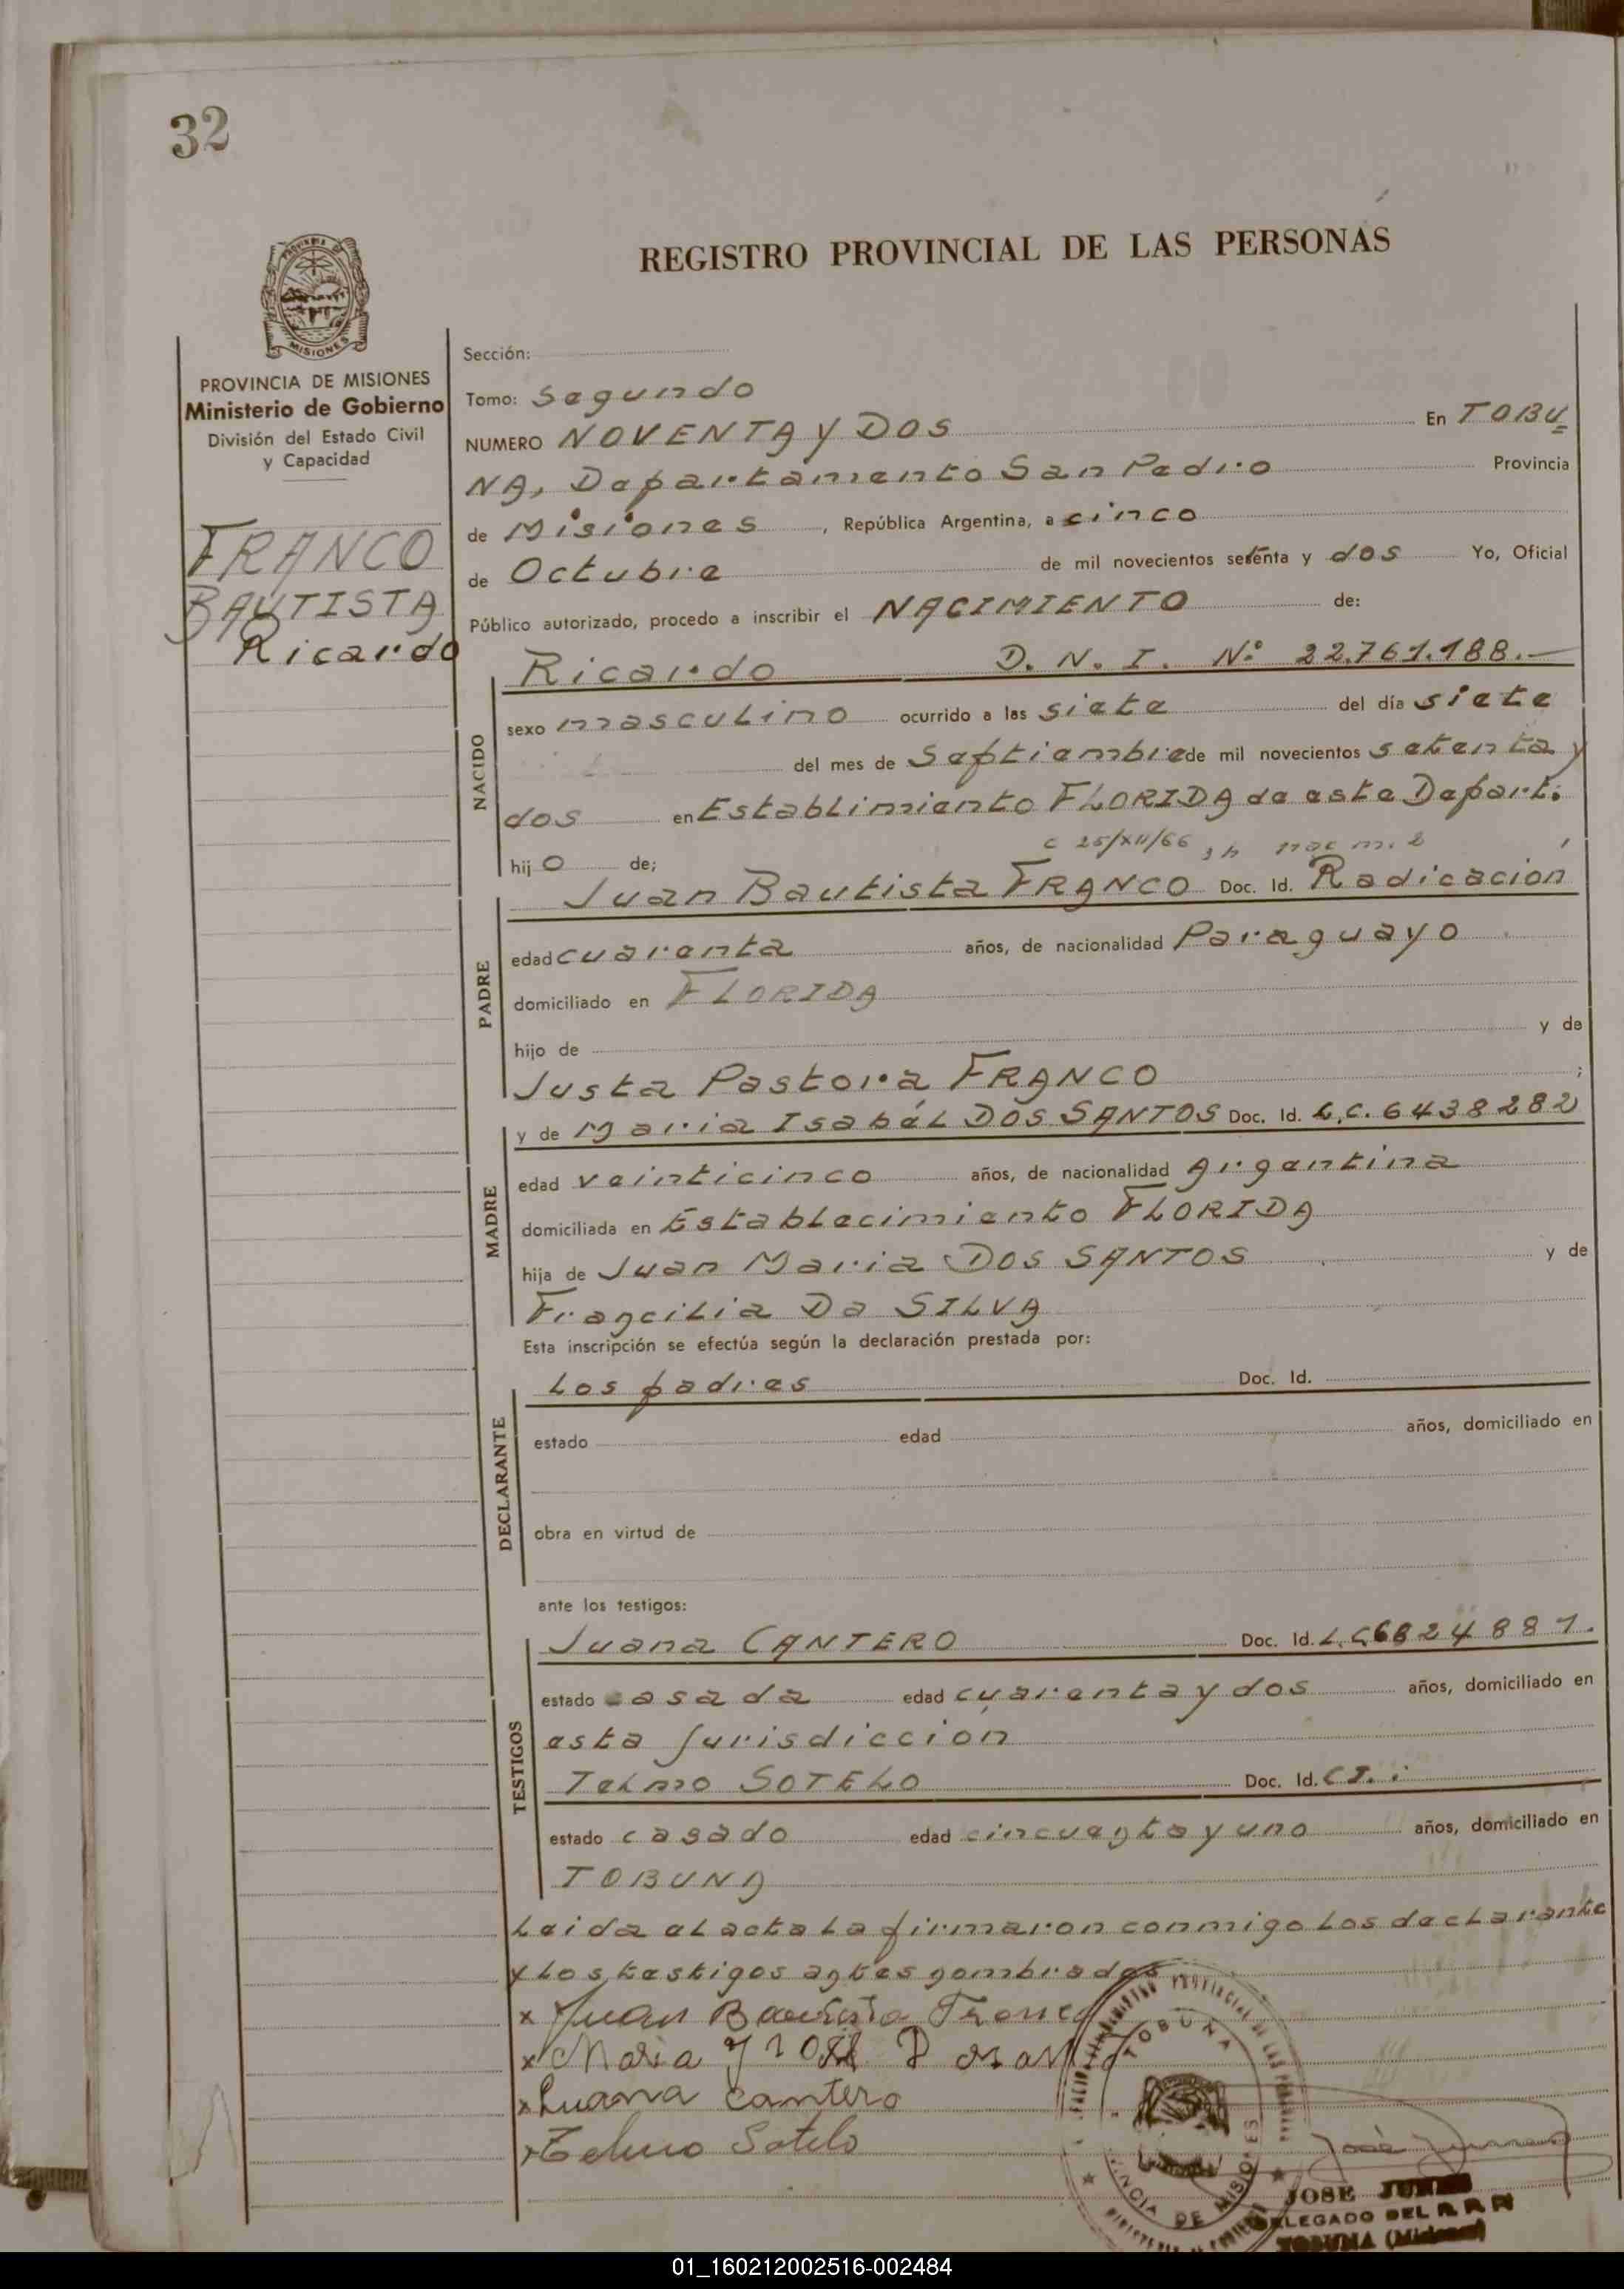 32
REGISTRO PROVINCIAL DE LAS PERSONAS
MISIONES
PROVINCIA DE MISIONES
Ministerio de Gobierno
División del Estado Civil
y Capacidad
FRANCO
BAUTISTA
Ricardo
Sección:
Tomo: Segundo
NUMERO NOVENTA y DOS En TOBU=
NA, Departamento San Pedro Provincia
de Misiones, República Argentina, a cinco
de Octubre de mil novecientos setenta y dos Yo, Oficial
Público autorizado, procedo a inscribir el NACIMIENTO de:
NACIDO
Ricardo D. N. I. Nº 22.761.188.—
sexo masculino ocurrido a las siete del día siete
del mes de Septiembre de mil novecientos setenta y
dos en Establimiento FLORIDA de este Depart.
c 25/XII/66
hijo de;
Juan Bautista FRANCO Doc. Id. Radicacion
PADRE
edad cuarenta años, de nacionalidad Paraguayo
domiciliado en FLORIDA
hijo de y de
Justa Pastora FRANCO ;
y de Maria Isabél DOS SANTOS Doc. Id. L.C. 6438282
MADRE
edad veinticinco años, de nacionalidad Argentina
domiciliada en Establecimiento FLORIDA
hija de Juan Maria DOS SANTOS y de
Francilia Da SILVA
Esta inscripción se efectúa según la declaración prestada por:
DECLARANTE
Los padres Doc. Id.
estado edad años, domiciliado en
obra en virtud de
ante los testigos:
TESTIGOS
Juana CANTERO Doc. Id. L.C.
estado casada edad cuarenta y dos años, domiciliado en
esta Jurisdiccion
Telmo SOTELO Doc. Id. C I.
estado casado edad cincuenta y uno años, domiciliado en
TOBUNA
Leida el acta la firmaron conmigo los declarante
y los testigos antes nombrados
x Juan Bautista Franco
x Maria
x Juana Cantero
x Telmo Sotelo
TOBUNA
DE MISIONES
JOSE
DELEGADO DEL
TOBUNA (Misiones)
01_160212002516-002484